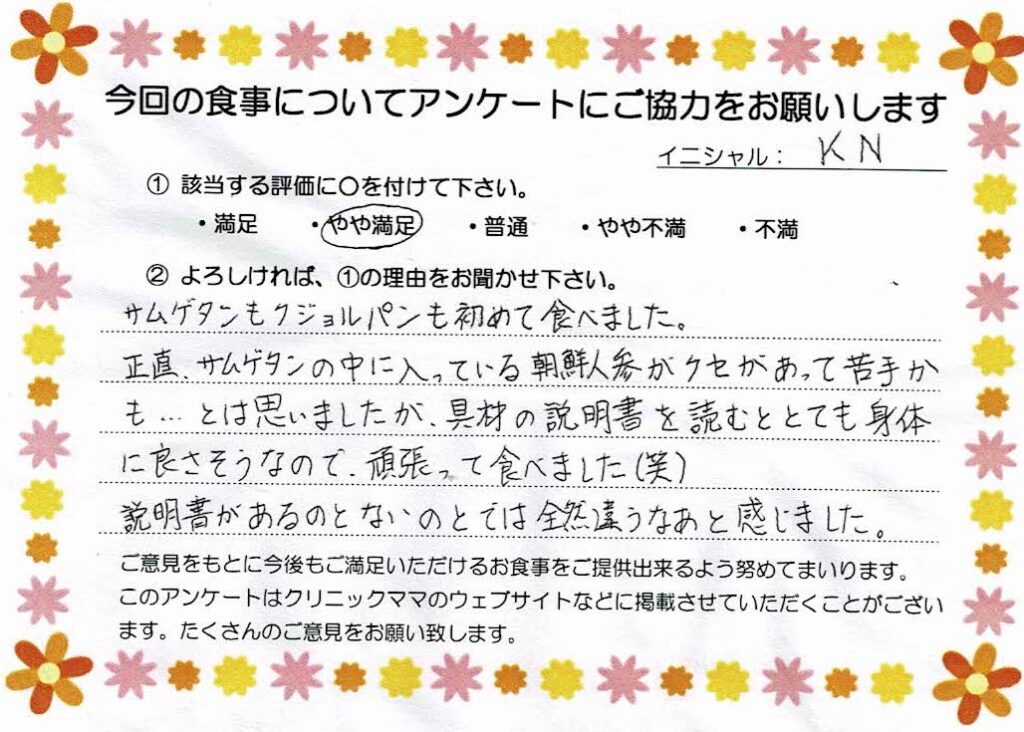 今回の食事についてアンケートにご協力をお願いします
イニシャル： KN
① 該当する評価に〇を付けて下さい。
・満足 ・やや満足 ・普通 ・やや不満 ・不満
② よろしければ、①の理由をお聞かせ下さい。
サムゲタンもクジョルパンも初めて食べました。
正直、サムゲタンの中に入っている朝鮮人参がクセがあって苦手か
も…とは思いましたが、具材の説明書を読むととても身体
に良さそうなので、頑張って食べました(笑)
説明書があるのとないのとでは全然違うなあと感じました。
ご意見をもとに今後もご満足いただけるお食事をご提供出来るよう努めてまいります。
このアンケートはクリニックママのウェブサイトなどに掲載させていただくことがござい
ます。たくさんのご意見をお願い致します。